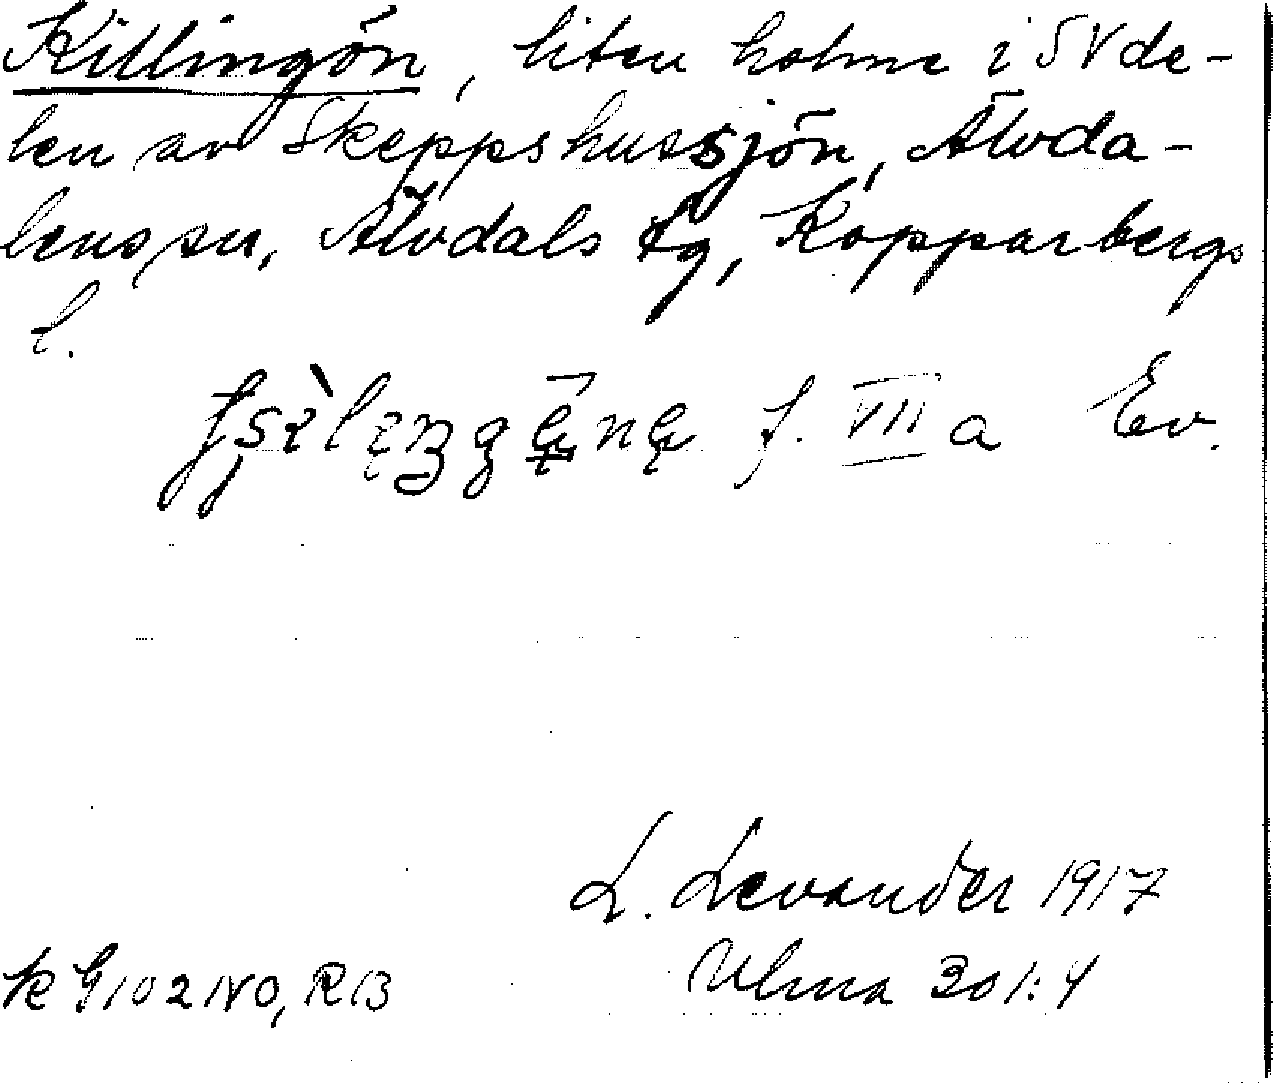 Killingön, liten holme i SV de-
len av Skeppshussjön, Älvda-
lens sn, Älvdals tg, Kopparbergs
l.
f. VII a Ev.
L. Levander 1917
Ulma 301:4
k G 102 NO, R 13